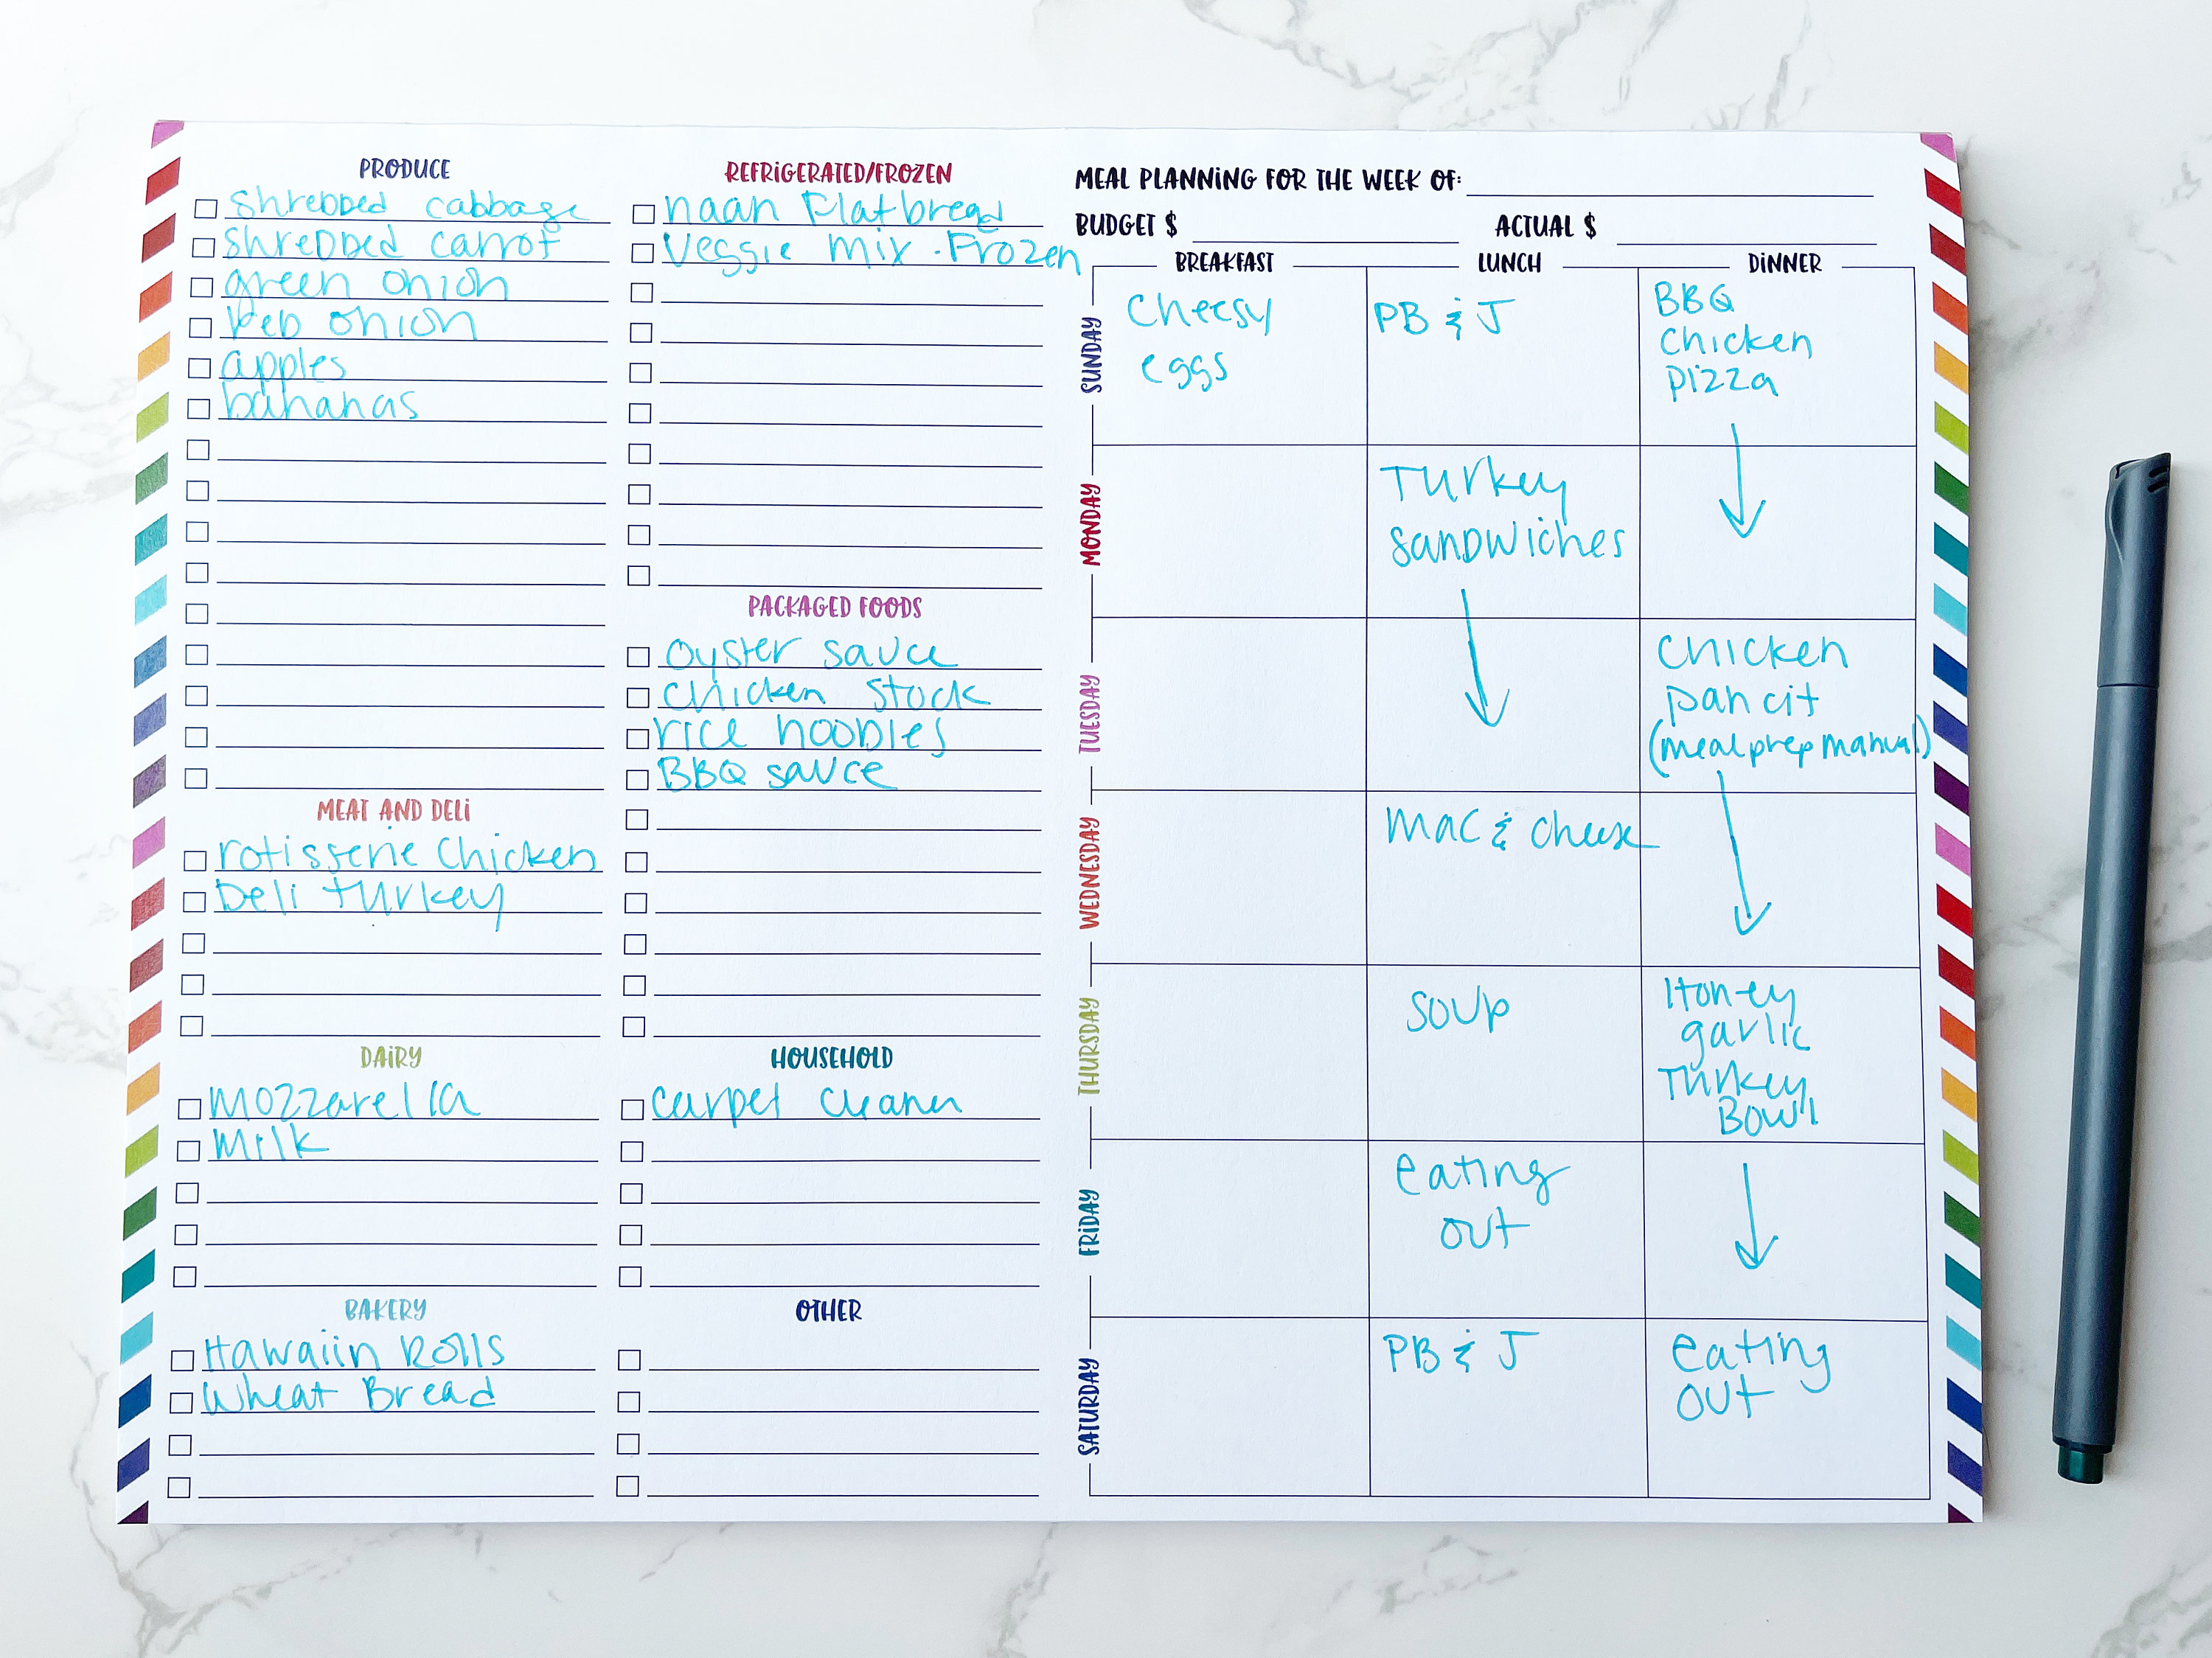 PRODUCE
shredded cabbage
shredded carrot
green onion
red onion
apples
bananas
MEAT AND DELI
rotisserie Chicken
Deli turkey
DAIRY
Mozzarella
Milk
BAKERY
Hawaiin Rolls
Wheat Bread
REFRIGERATED/FROZEN
naan Flatbread
Veggie mix - Frozen
PACKAGED FOODS
oyster sauce
chicken stock
rice noodles
BBQ sauce
HOUSEHOLD
carpet cleaner
OTHER
MEAL PLANNING FOR THE WEEK OF:
BUDGET $ ACTUAL $
BREAKFAST LUNCH DINNER
SUNDAY
Cheesy
eggs
PB & J
BBQ
Chicken
pizza
MONDAY
Turkey
sandwiches
TUESDAY
Chicken
pancit
(meal prep manual)
WEDNESDAY
Mac & cheese
THURSDAY
soup
Honey
garlic
Turkey
Bowl
FRIDAY
eating
out
SATURDAY
PB & J
eating
out